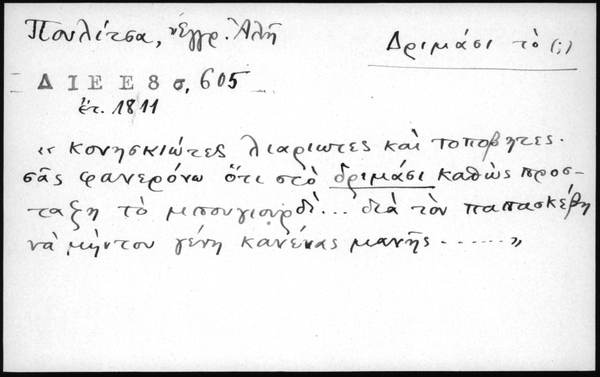 Πουλίτσα, Ἔγγρ. Ἀλῆ
Δριμάσι τὸ (;)
Δ Ι Ε Ε 8 σ. 605
ἔτ. 1811
« κονησκιώτες λιαριωτες καὶ τοποβητες.
σᾶς φανερόνω ὅτι στὸ δριμάσι καθὼς προσ-
ταξη τὸ μπουγιουρδὶ... διὰ τὸν παπασκέβη
νὰ μήντου γένη κανένας μανῆς ...... »